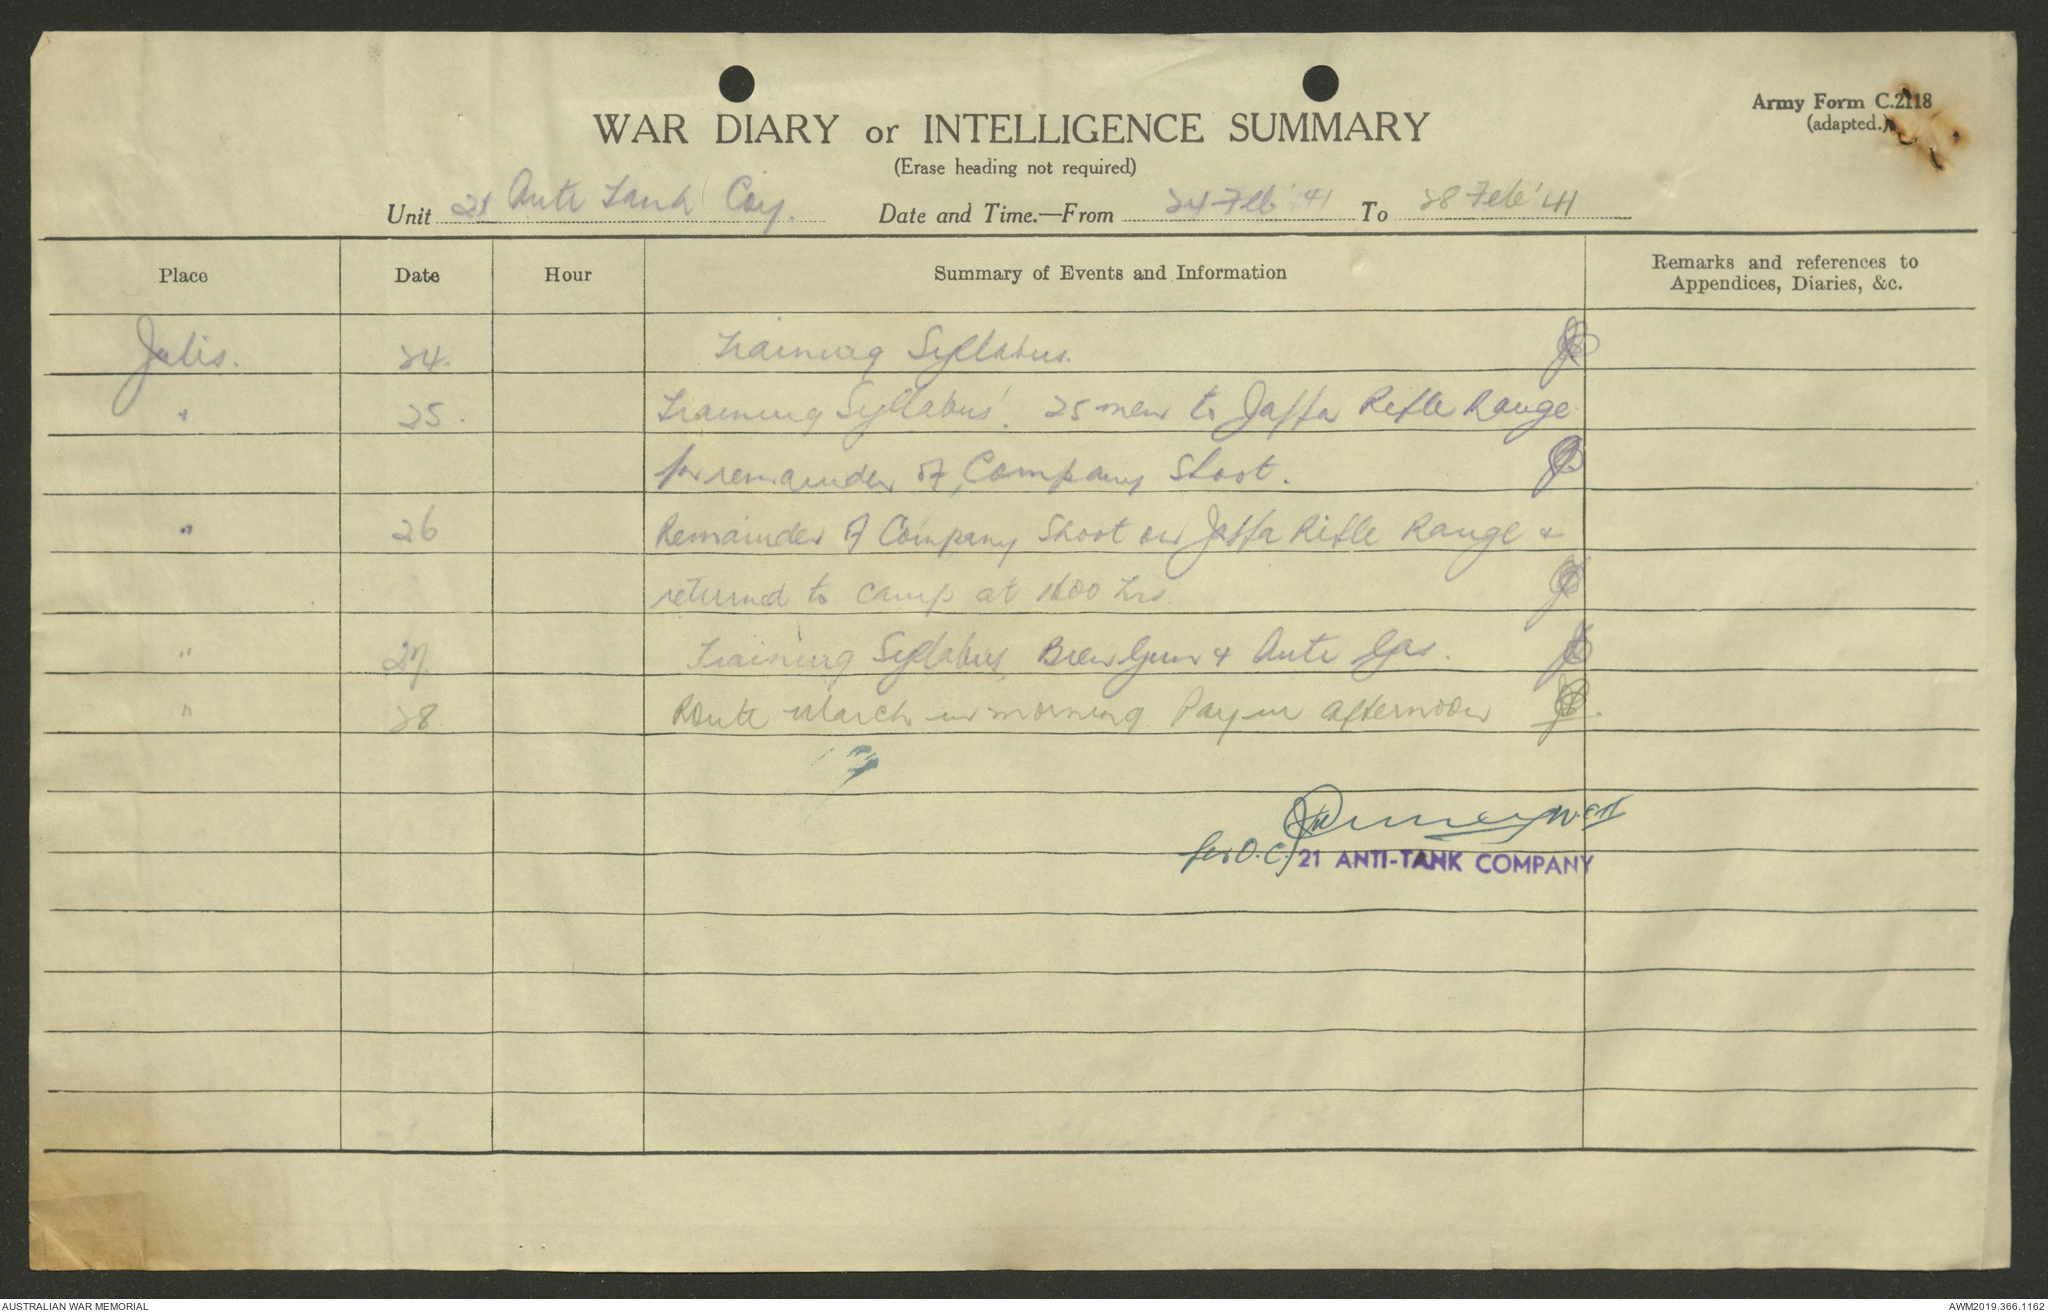 Army Form C.2118
(adapted.)
WAR DIARY or INTELLIGENCE SUMMARY
(Erase heading not required)
Unit 21 Anti Tank Coy. Date and Time.—From 24 Feb '41 To 28 Feb '41
Place Date Hour Summary of Events and Information Remarks and references to
Appendices, Diaries, &c.
Julis. 24. Training Syllabus.
" 25. Training Syllabus. 25 men to Jaffa Rifle Range
for remainder of Company Shoot.
" 26 Remainder of Company Shoot on Jaffa Rifle Range &
returned to camp at 1600 hrs.
" 27. Training Syllabus, Bren Gun & Anti Gas.
" 28 Route March in morning. Pay in afternoon
for O.C. 21 ANTI-TANK COMPANY
AUSTRALIAN WAR MEMORIAL AWM2019.366.1162